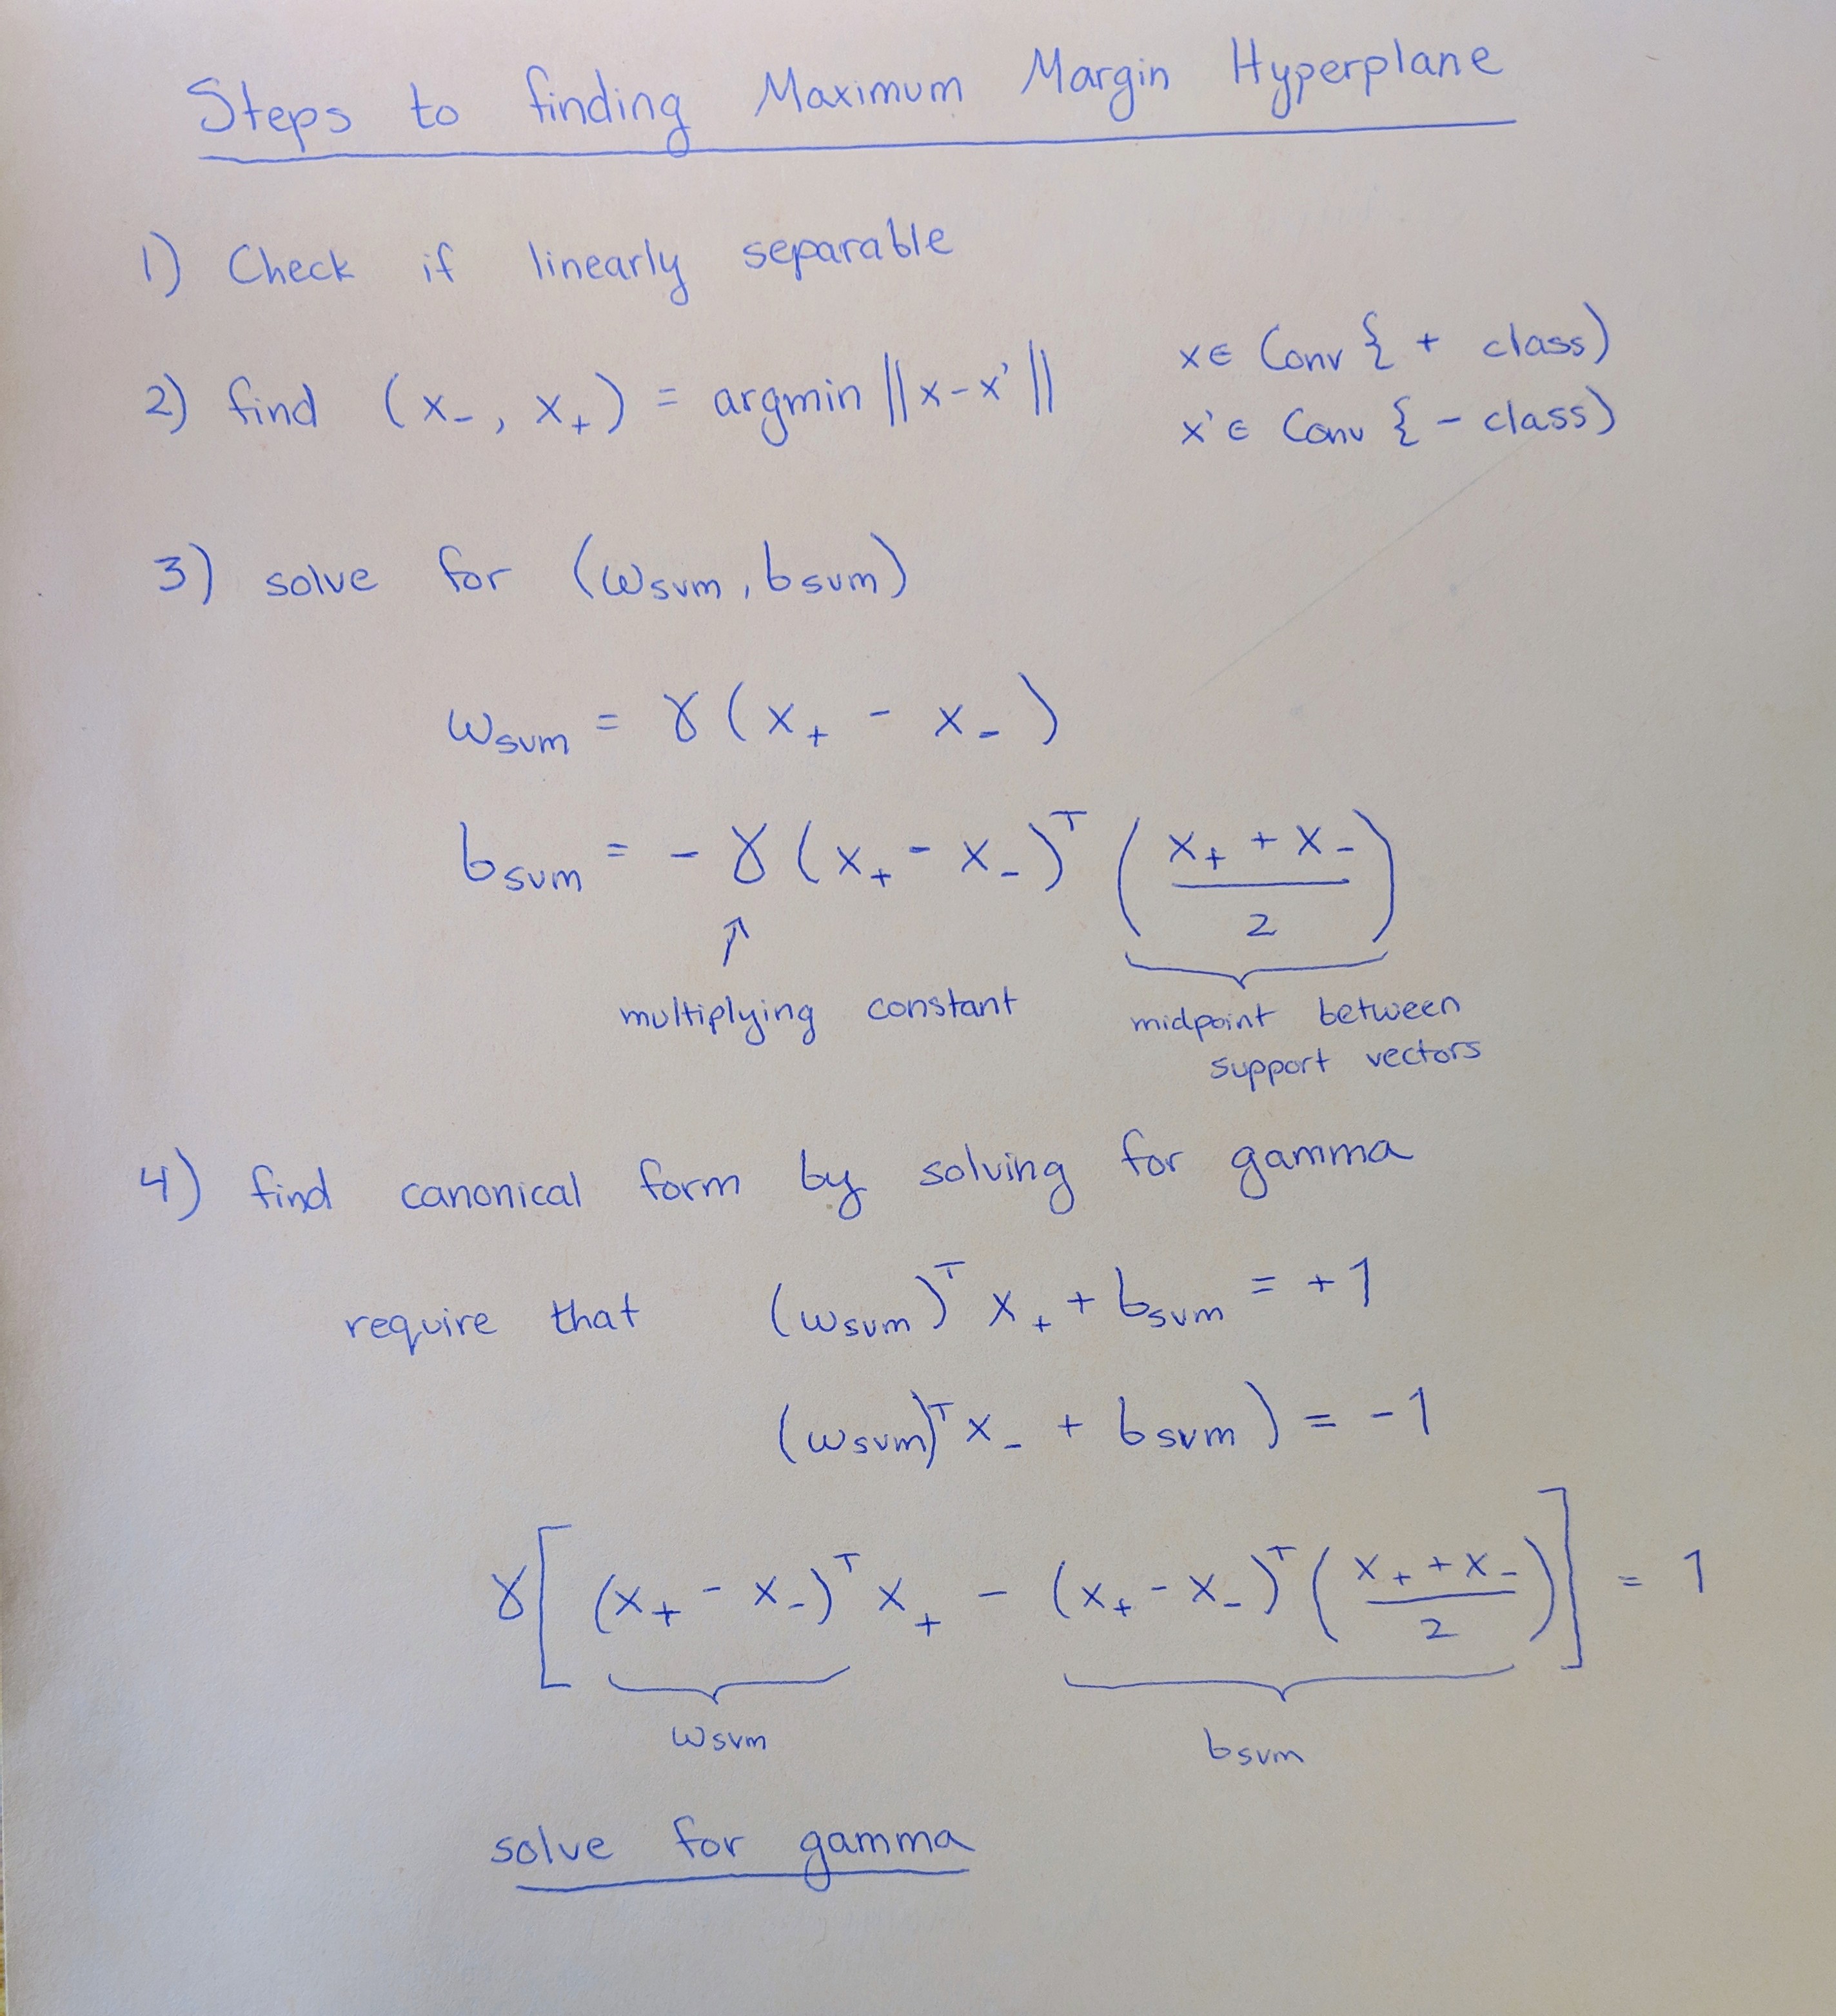 Steps to finding Maximum Margin Hyperplane
1) Check if linearly separable
2) find (x₋, x₊) = argmin ||x-x'||
x ∈ Conv { + class)
x' ∈ Conv { - class)
3) solve for (wsvm, bsvm)
wsvm = γ(x₊ - x₋)
bsvm = - γ(x₊ - x₋)ᵀ ((x₊ + x₋)/2)
↑
multiplying constant
midpoint between
support vectors
4) find canonical form by solving for gamma
require that (wsvm)ᵀ x₊ + bsvm = +1
(wsvm)ᵀ x₋ + bsvm) = -1
γ[(x₊ - x₋)ᵀ x₊ - (x₊ - x₋)ᵀ ((x₊ + x₋)/2)] = 1
wsvm bsvm
solve for gamma